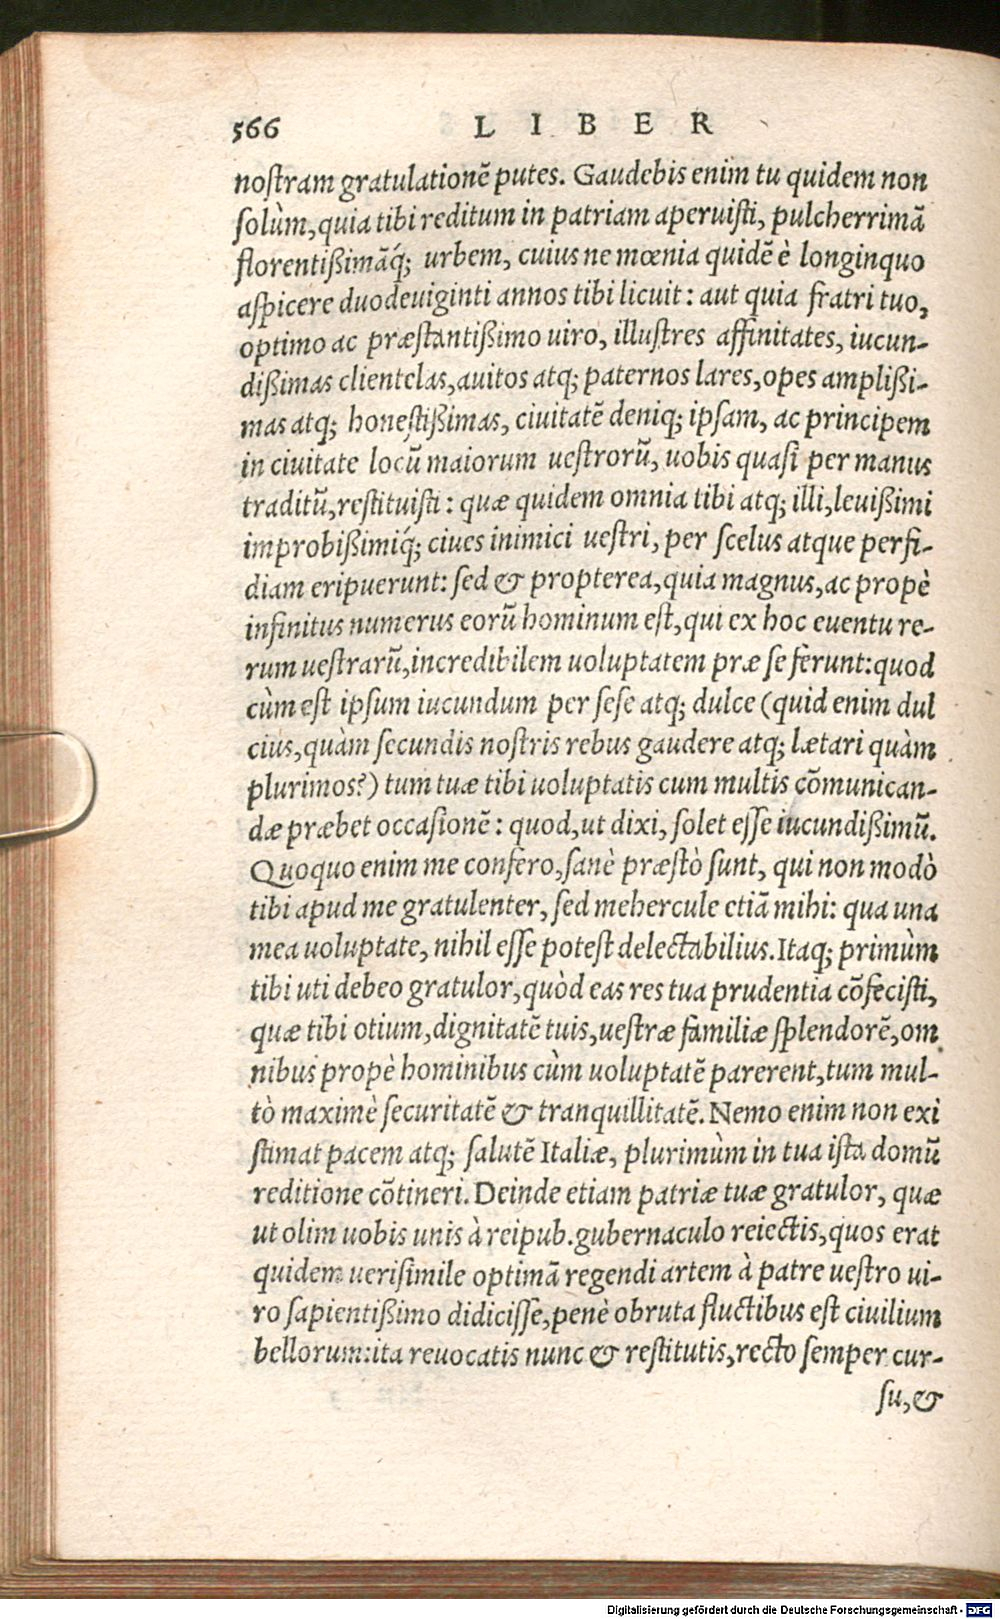 566 LIBER
nostram gratulationẽ putes. Gaudebis enim tu quidem non
solùm, quia tibi reditum in patriam aperuisti, pulcherrimã
florentißimãq́; urbem, cuius ne mœnia quidẽ è longinquo
aspicere duodeuiginti annos tibi licuit: aut quia fratri tuo,
optimo ac præstantißimo uiro, illustres affinitates, iucun-
dißimas clientelas, auitos atq; paternos lares, opes amplißi-
mas atq; honestißimas, ciuitatẽ deniq; ipsam, ac principem
in ciuitate locũ maiorum uestrorũ, uobis quasi per manus
traditũ, restituisti: quæ quidem omnia tibi atq; illi, leuißimi
improbißimiq́; ciues inimici uestri, per scelus atque perfi-
diam eripuerunt: sed & propterea, quia magnus, ac propè
infinitus numerus eorũ hominum est, qui ex hoc euentu re-
rum uestrarũ, incredibilem uoluptatem præ se ferunt: quod
cùm est ipsum iucundum per sese atq; dulce (quid enim dul
cius, quàm secundis nostris rebus gaudere atq; lætari quàm
plurimos?) tum tuæ tibi uoluptatis cum multis cõmunican-
dæ præbet occasionẽ: quod, ut dixi, solet esse iucundißimũ.
Quoquo enim me confero, sanè præstò sunt, qui non modò
tibi apud me gratulenter, sed mehercule etiã mihi: qua una
mea uoluptate, nihil esse potest delectabilius. Itaq; primùm
tibi uti debeo gratulor, quòd eas res tua prudentia cõfecisti,
quæ tibi otium, dignitatẽ tuis, uestræ familiæ splendorẽ, om
nibus propè hominibus cùm uoluptatẽ parerent, tum mul-
tò maximè securitatẽ & tranquillitatẽ. Nemo enim non exi
stimat pacem atq; salutẽ Italiæ, plurimùm in tua ista domũ
reditione cõtineri. Deinde etiam patriæ tuæ gratulor, quæ
ut olim uobis unis à reipub. gubernaculo reiectis, quos erat
quidem uerisimile optimã regendi artem à patre uestro ui-
ro sapientißimo didicisse, penè obruta fluctibus est ciuilium
bellorum: ita reuocatis nunc & restitutis, recto semper cur-
su, &
Digitalisierung gefördert durch die Deutsche Forschungsgemeinschaft - DFG